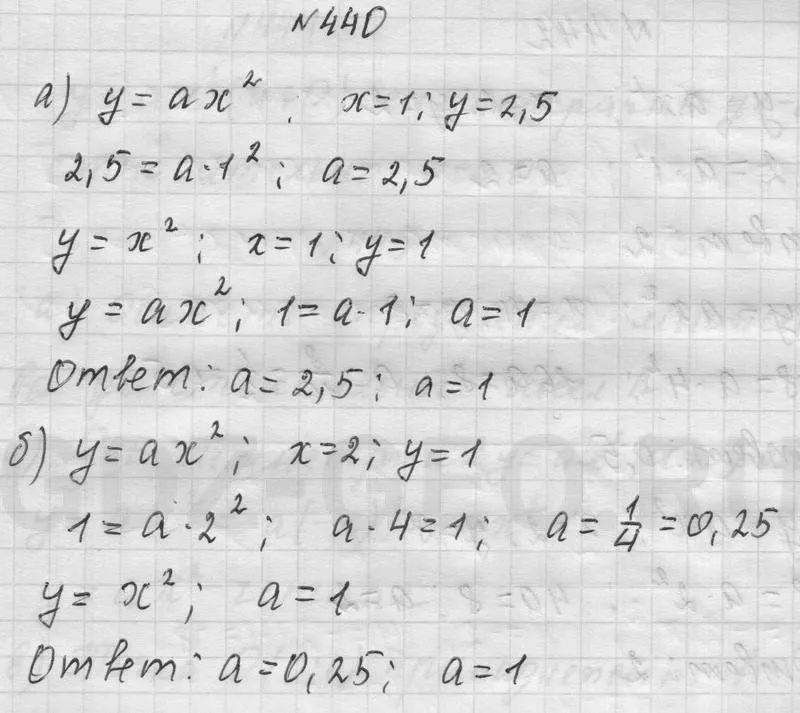 N440
а) y = ax²; x=1; y=2,5
2,5 = a·1²; a=2,5
y = x²; x=1; y=1
y = ax²; 1=a·1; a=1
Ответ: a=2,5; a=1
б) y = ax²; x=2; y=1
1=a·2²; a·4=1; a=1/4=0,25
y = x²; a=1
Ответ: a=0,25; a=1